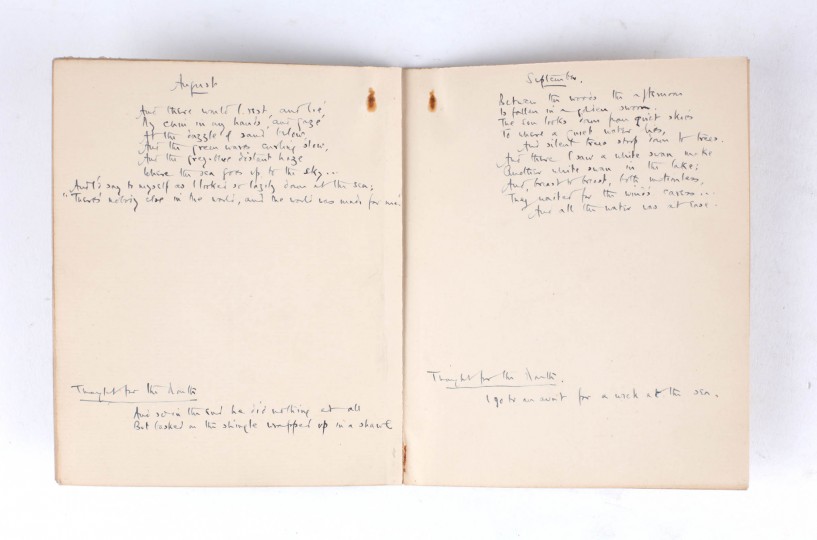 August
And there would I rest, and lie,
My chin in my hands, and gaze
At the dazzle of sand below,
And the green waves curling slow,
And the grey-blue distant haze
Where the sea goes up to the sky...
And I'd say to myself as I looked so lazily down at the sea:
"There's nothing else in the world, and the world was made for me."
Thought for the Month
And so in the end he did nothing at all
But basked on the shingle wrapped up in a shawl
September.
Between the woods the afternoon
Is fallen in a golden swoon.
The sun looks down from quiet skies
To where a quiet water lies,
And silent trees stoop down to trees.
And there I saw a white swan make
Another white swan in the lake;
And, breast to breast, both motionless,
They waited for the wind's caress...
And all the water was at ease.
Thought for the Month.
I go to an aunt for a week at the sea.